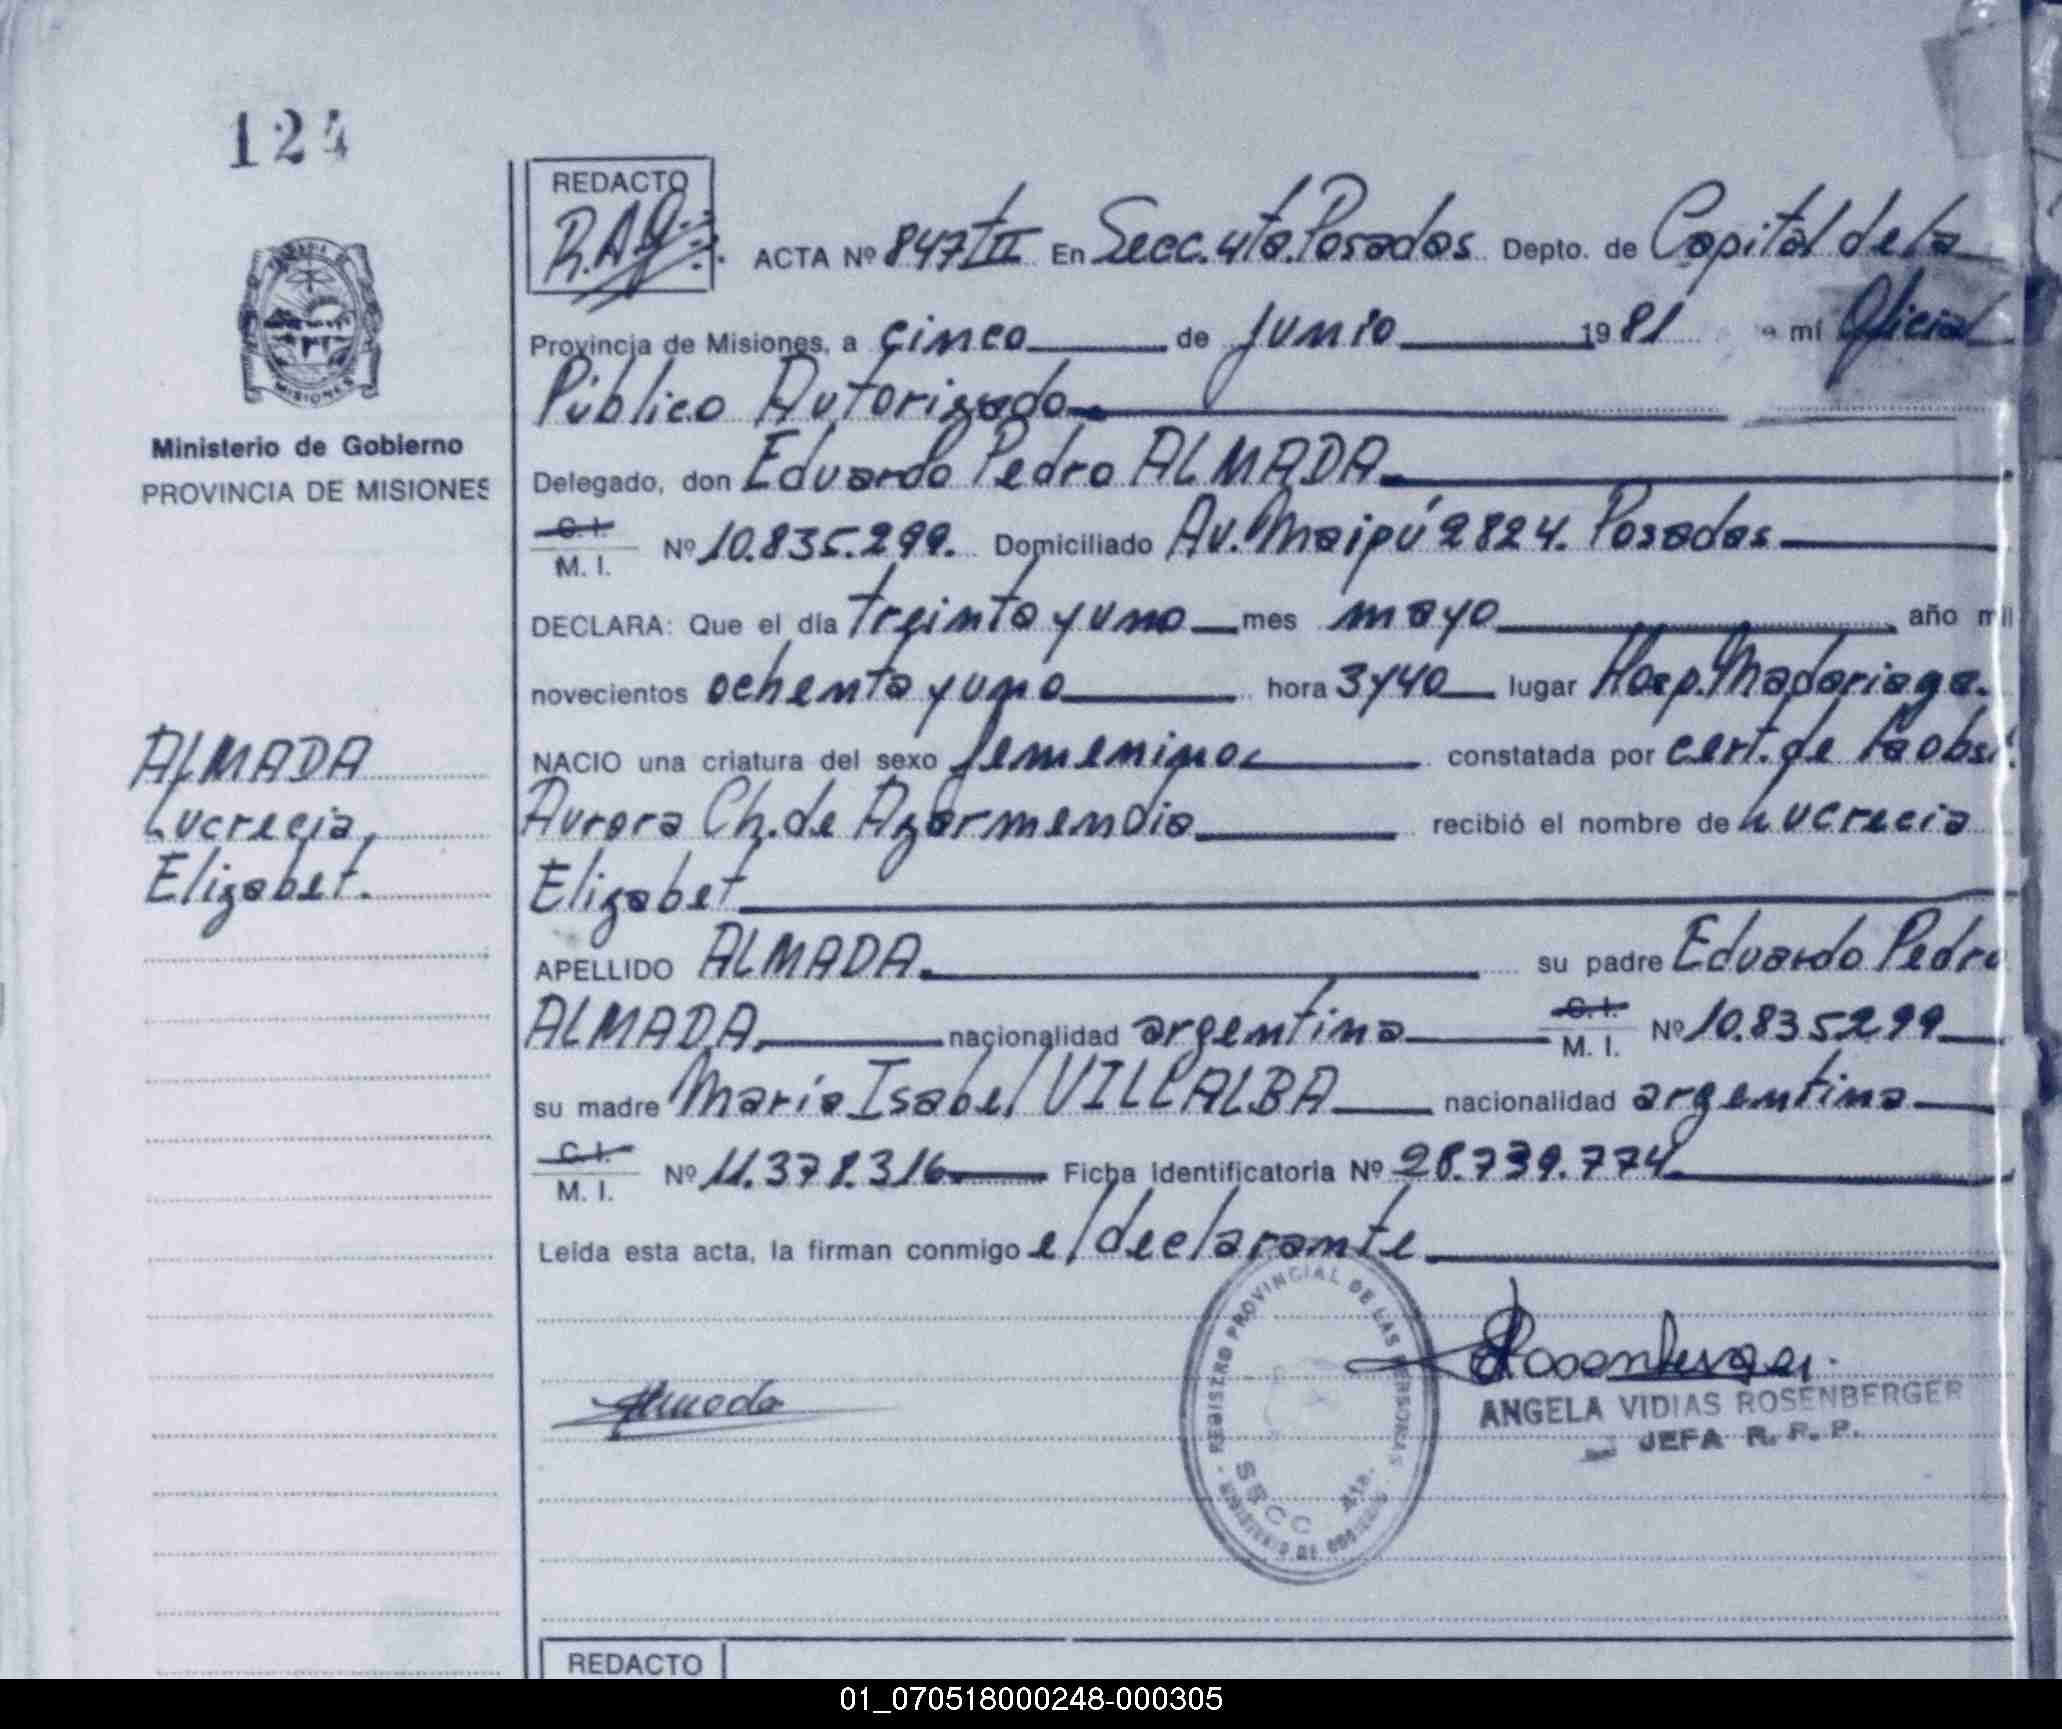 124
REDACTO
R.A.G.
ACTA Nº 847 TII En Secc. 4ta. Posadas Depto. de Capital de la
Provincia de Misiones, a cinco de junio 1981 a mí Oficial
Público Autorizado
Ministerio de Gobierno
PROVINCIA DE MISIONES
Delegado, don Eduardo Pedro ALMADA
C. I.
M. I. Nº 10.835.299. Domiciliado Av. Maipú 2824. Posadas
DECLARA: Que el día treinta y uno mes mayo año mil
novecientos ochenta y uno hora 3 y 40 lugar Hosp. Madariaga.
ALMADA
Lucrecia,
Elizabet.
NACIO una criatura del sexo femenino constatada por cert. de la obst.
Aurora Ch. de Azarmendia recibió el nombre de Lucrecia
Elizabet
APELLIDO ALMADA su padre Eduardo Pedro
ALMADA nacionalidad argentina C. I. M. I. Nº 10.835299
su madre María Isabel VILLALBA nacionalidad argentina
C. I.
M. I. Nº 11.378.316 Ficha Identificatoria Nº 28.739.774
Leída esta acta, la firman conmigo el declarante
REGISTRO PROVINCIAL DE LAS PERSONAS
MINISTERIO DE GOBIERNO
SECC
Almada
Rosenberger
ANGELA VIDIAS ROSENBERGER
JEFA R. P. P.
REDACTO
01_070518000248-000305